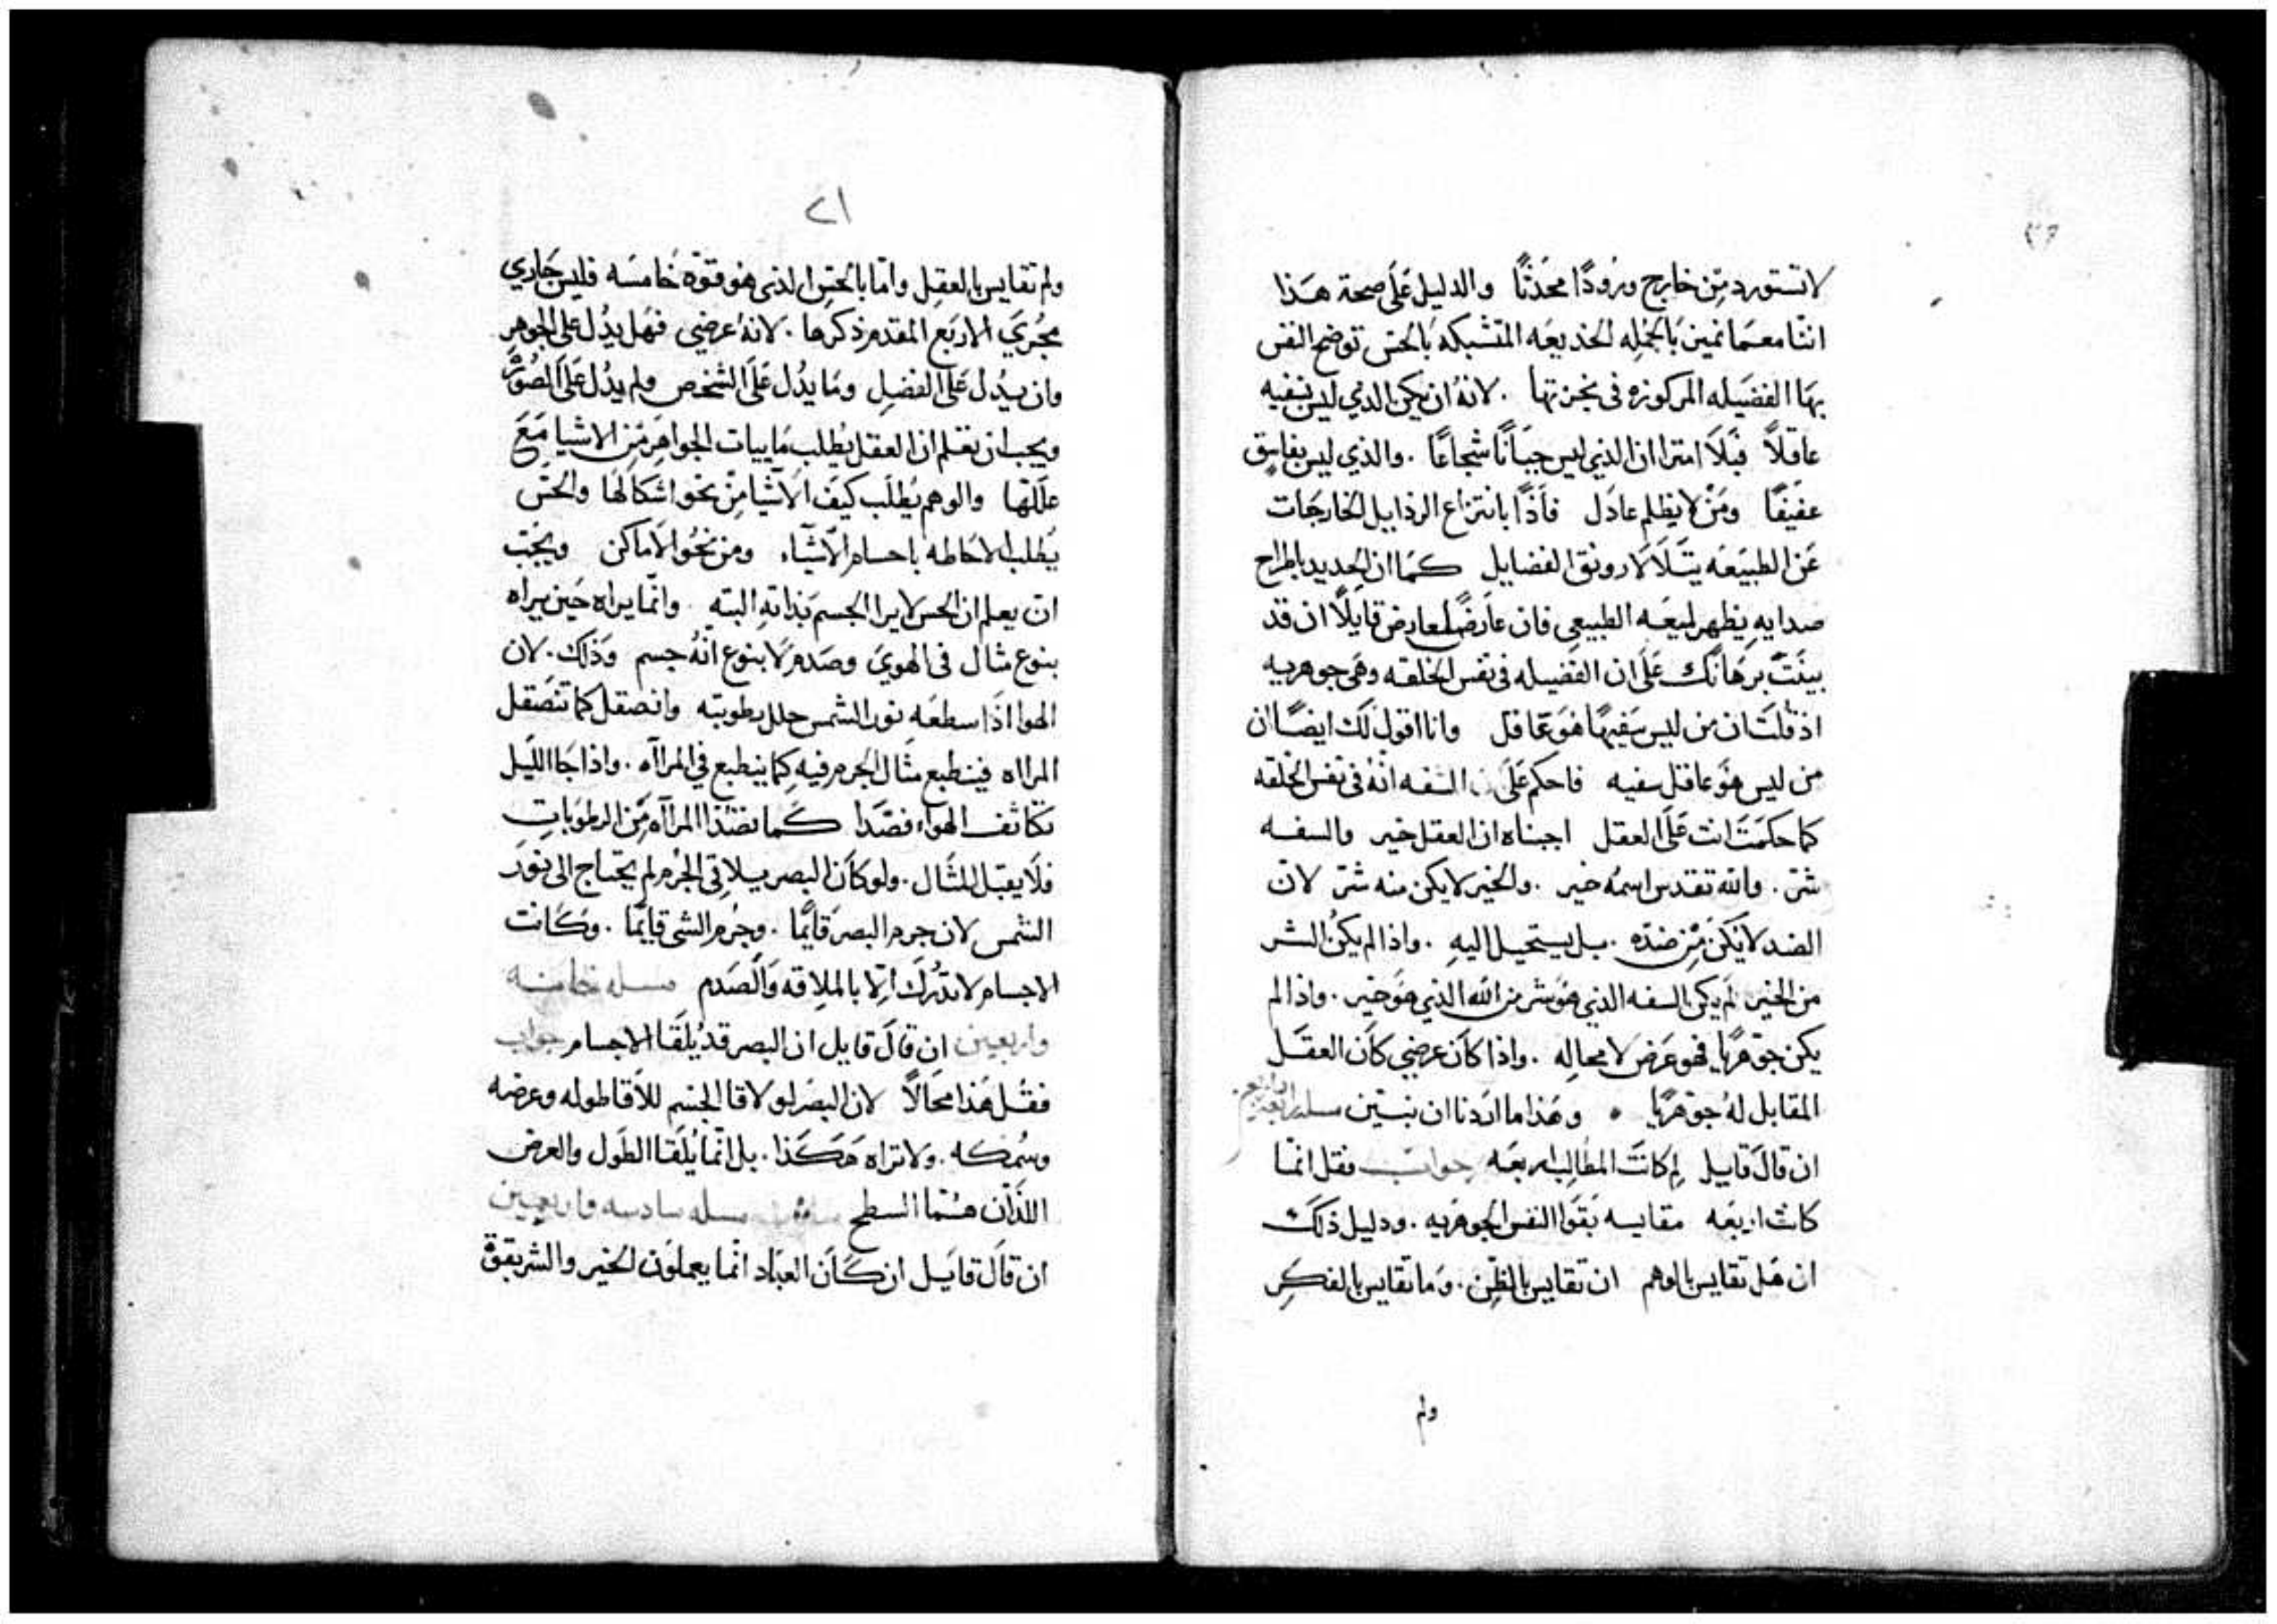 لا تستورد من خارج ورودًا محدثًا والدليل على صحة هذا
اننا معما نحن بالجمله الخديعه المتشبكه بالحس توضح النفس
بها الفضيله المركوزه فى
لانه ان يكن الذي ليس بسفيه
عاقلاً فبلا امترا ان الذي ليس جبانًا شجاعًا . والذي ليس بفاسق
عفيفًا ومن لا يظلم عادل فاذًا بانتزاع الرذايل الخارجات
عن الطبيعه يتلالا رونق الفضايل كما ان الحديد باطراح
صدايه يظهر لميعه الطبيعى فان عارض لمعارض قايلًا ان قد
بينت برهانك على ان الفضيله فى نفس الخلقه وهى جوهريه
اذ قلت ان من ليس سفيهًا هو عاقل وانا اقول لك ايضًا ان
من ليس هو عاقل سفيه فاحكم على السفه انه فى نفس الخلقه
كما حكمت انت على العقل اجبناه ان العقل خير والسفه
شر . والله تقدس اسمه خير . والخير لا يكن منه شر لان
الضد لا يكن من ضده . بل يستحيل اليه . واذا لم يكن الشر
من الخير لم يكن السفه الذي هو شر من الله الذي هو خير . واذا لم
يكن جوهريًا فهو عرض لا محاله . واذا كان عرضي كان العقل
المقابل له جوهريًا • وهذا ما اردنا ان نبين مسله
ان قال قايل لم كانت المطالب اربعه جواب فقل انما
كانت اربعه مقايسه بقوا النفس الجوهريه . ودليل ذلك
ان هل تقايس بالوهم ان تقايس بالظن . وما تقايس بالفكر
ولم
٢١
ولم تقايس بالعقل واما بالحس الذى هو قوة خامسه فليس جاري
مجري الاربع المقدم ذكرها . لانه عرضي فهل يدل على الجوهر
وان يدل على الفضل وما يدل على الشخص ولم يدل على الصور
ويجب ان تعلم ان العقل يطلب ماييات الجواهر من الاشيا مع
عللها والوهم يطلب كيف الاشيا من نحو اشكالها والحس
يطلب الاحاطه باجسام الاشياء ومن نحو الاماكن ويجب
ان يعلم ان الحس لا يرا الجسم بذاته البته . وانما يراه حين يراه
بنوع مثال فى الهوي وصدم لا بنوع انه جسم وذلك . لان
الهوا اذا سطعه نور الشمس حلل رطوبته وانصقل كما تنصقل
المراه فينطبع مثال الجرم فيه كما ينطبع في المرااه . واذا جا الليل
تكاثف الهواء فصدا كما تصدا المرااه من الرطوبات
فلا يقبل المثال . ولو كان البصر يلاقى الجرم لم يحتاج الى نور
الشمس لان جرم البصر قايمًا . وجرم الشى قايمًا . وكانت
الاجسام لا تدرك الا بالملاقه والصدم مسله خامسه
واربعين ان قال قايل ان البصر قد يلقا الاجسام جواب
فقل هذا محالًا لان البصر لو لاقا الجسم للاقا طوله وعرضه
وسمكه . ولا تراه هكذا . بل انما يلقا الطول والعرض
اللذان هما السطح مسله سادسه واربعين
ان قال قايل ان كان العباد انما يعملون الخير والشر بقوة